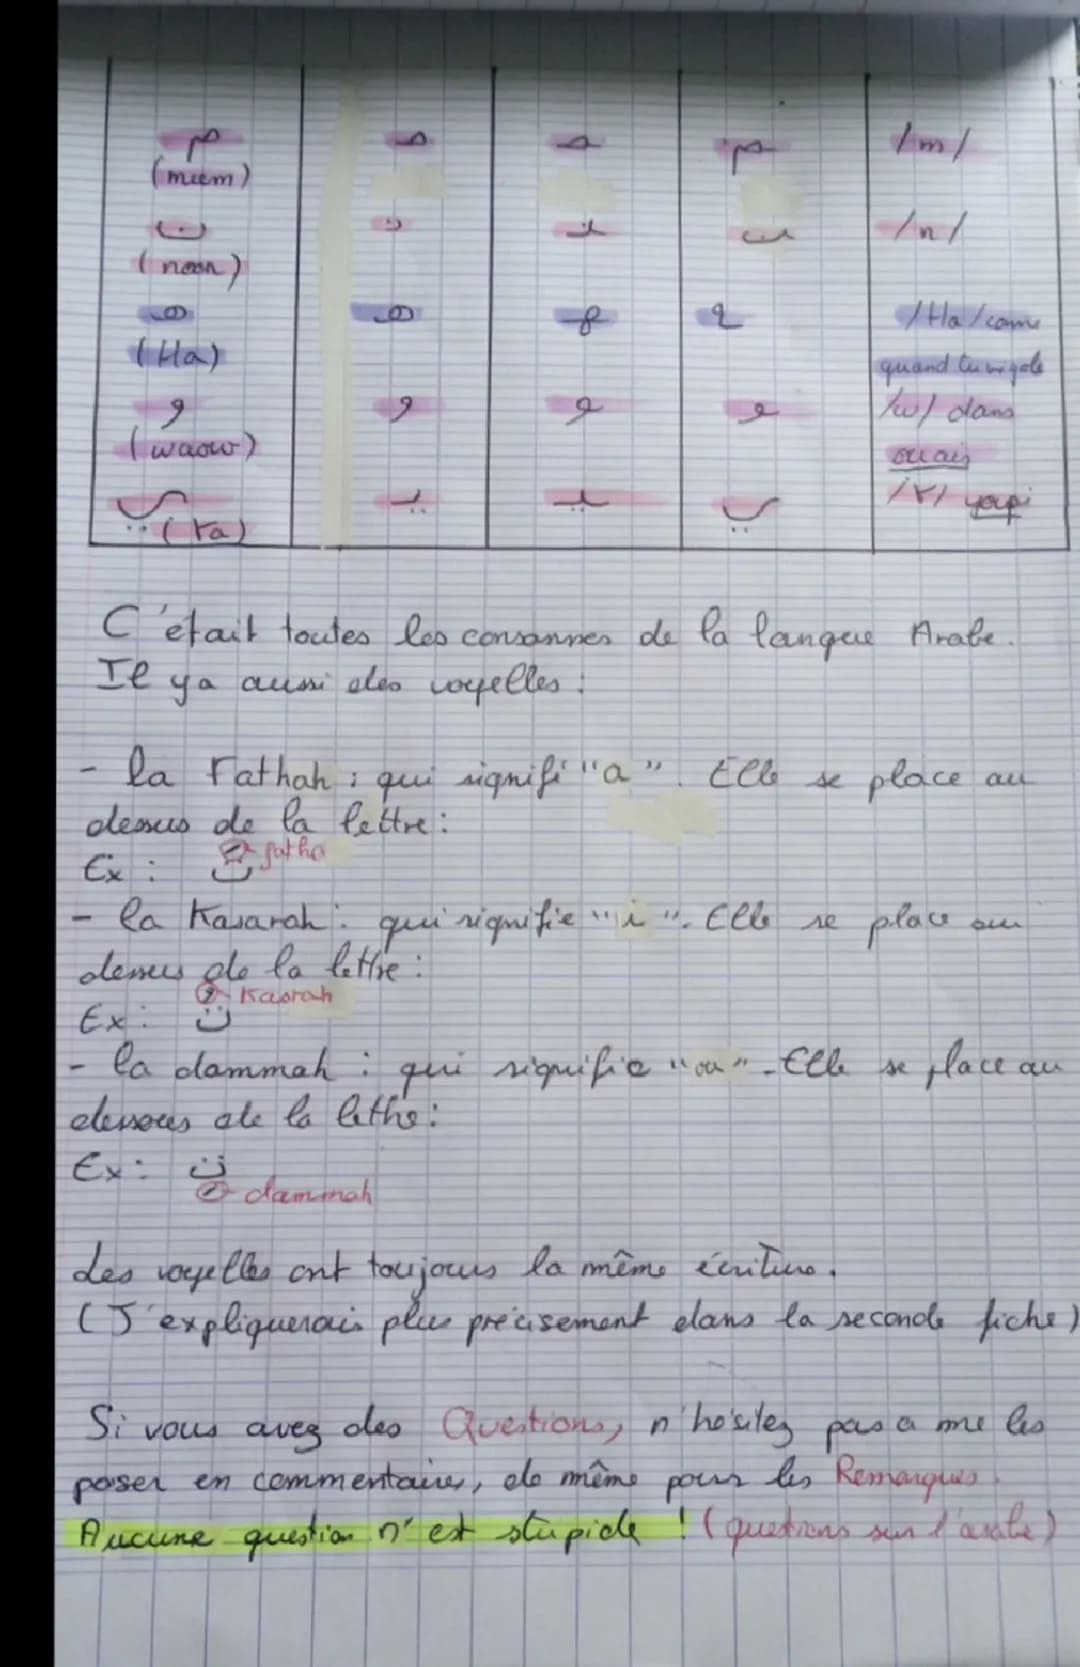 م مـ ـمـ ـم /m/
(miem)
ن نـ ـنـ ـن /n/
(noon)
ه هـ ـهـ ـه /Ha/ come
(Ha) quand tu rigole
و و و ـو /w/ dans
(waow) ouais
ي يـ ـيـ ي /Y/ youpi
(Ya)
C'était toutes les consonnes de la langue Arabe.
Il ya aussi des voyelles :
- la Fathah : qui signifi "a". Elle se place au
dessus de la lettre :
Ex : ن fatha
- la Kasarah : qui signifie "i". Elle se place au
dessus de la lettre :
Kasrah
Ex : ن
- la dammah : qui signifie "ou". Elle se place au
dessous de la lettre :
Ex : ن
dammah
Les voyelles ont toujours la même écriture.
(J'expliquerais plus précisement dans la seconde fiche)
Si vous avez des Questions, n'hésitez pas a me les
poser en commentaires, de même pour les Remarques.
Aucune question n'est stupide ! (questions sur l'arabe)